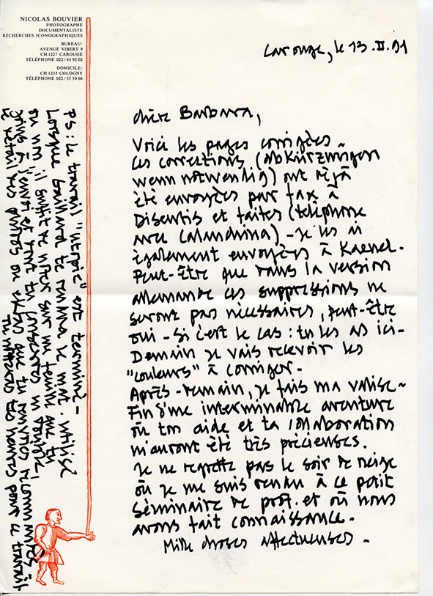 NICOLAS BOUVIER
PHOTOGRAPHE
DOCUMENTALISTE
RECHERCHES ICONOGRAPHIQUES
BUREAU:
AVENUE VIBERT 9
CH-1227 CAROUGE
TÉLÉPHONE 022/
DOMICILE:
CH-1223 COLOGNY
TÉLÉPHONE 022/
Carouge, le 13. II. 91
chère Barbara,
Voici les pages corrigées -
Les corrections (abkürzungen
wenn notwendig) ont déjà
été envoyées par fax à
Disentis et faites (téléphone
avec Calandrina) - je les ai
également envoyées à Kaenel.
Peut-être que dans la version
allemande ces suppressions ne
seront pas nécessaires, peut-être
oui - Si c'est le cas: tu les as ici -
Demain je vais recevoir les
"couleurs" à corriger.
Après-demain, je fais ma valise -
Fin d'une interminable aventure
où ton aide et ta collaboration
m'auront été très précieuses.
Je ne regrette pas le soir de neige
où je me suis rendu à ce petit
séminaire de prof. et où nous
avons fait connaissance.
Mille choses affectueuses -
PS: Le travail "utopie" est terminé -
Lorsque Gaillard te rendra le mat. utilisé